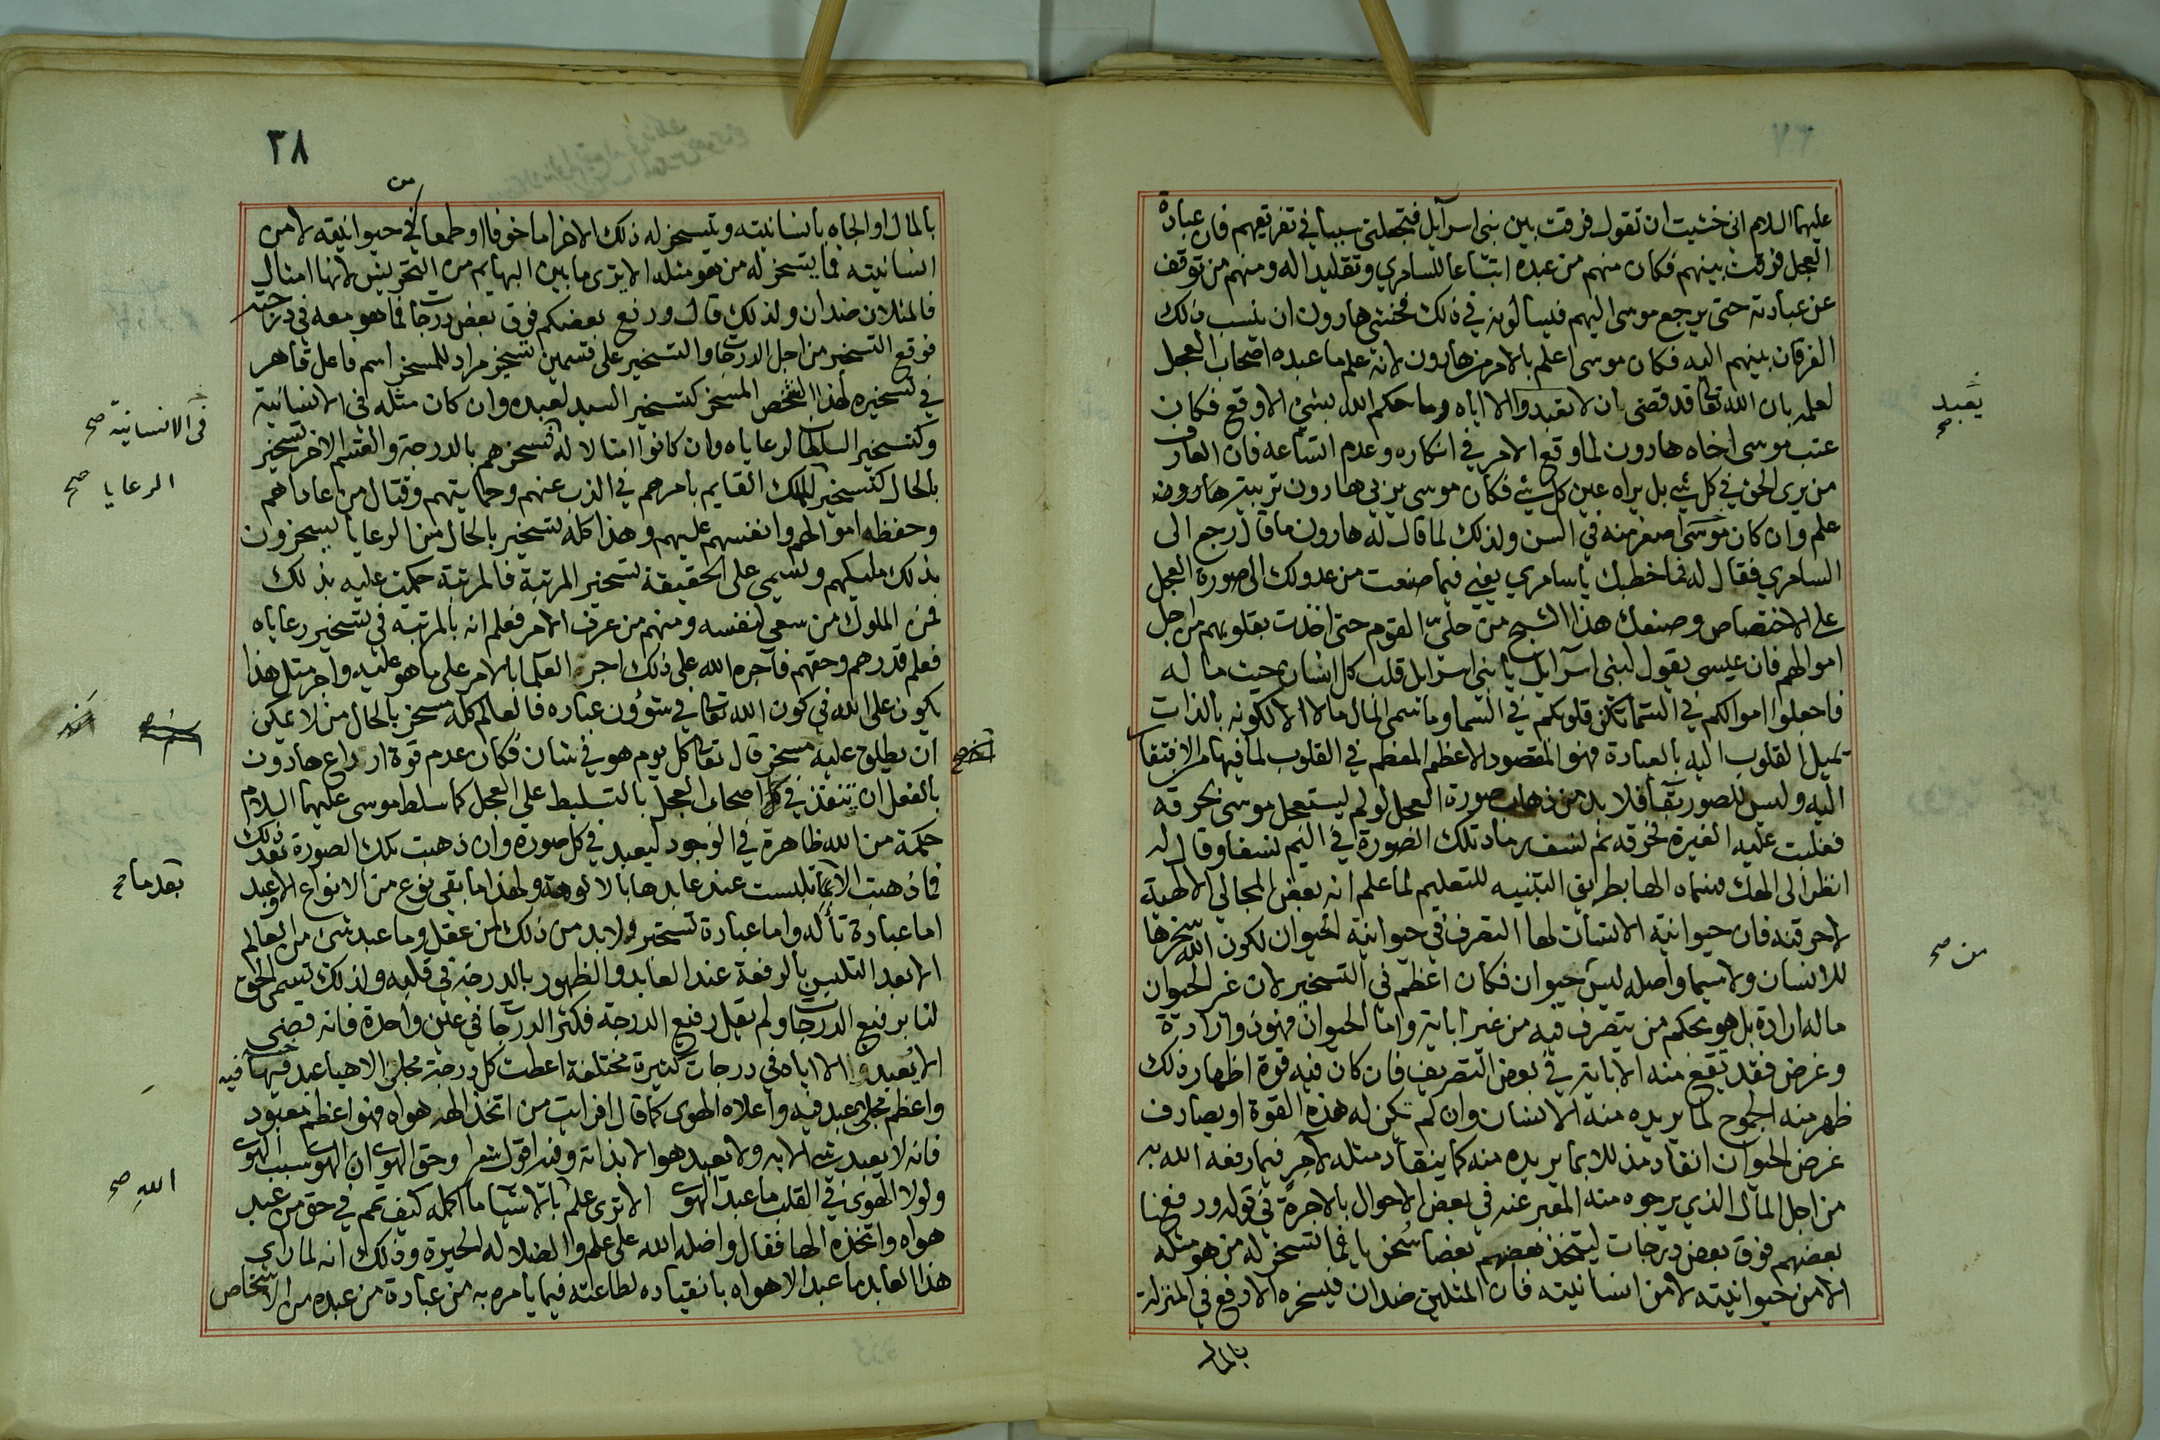 عليهما السلام انى خشيت ان تقول فرقت بين بنى اسرآئيل فتجعلنى سببا في تفريقهم فان عبادة
العجل فرقت بينهم فكان منهم من عبده اتباعا للسامري وتقليدا له ومنهم من توقف
عن عبادته حتى يرجع موسى اليهم فيسالونه في ذلك فخشى هارون ان ينسب ذلك
الفرقان بينهم اليه فكان موسى اعلم بالامر من هارون لانه علم ما عبده اصحاب العجل
لعلمه بان الله تعا قد قضى بان لا تعبدوا الا اياه وما حكم الله بشئ الا وقع فكان
يعبد صح
عتب موسى اخاه هارون لما وقع الامر في انكاره وعدم اتساعه فان العارف
من يرى الحق في كل شئ بل يراه عين كل شئ فكان موسى يربي هارون تربيتر هارون
علم وان كان موسى اصغر منه في السن ولذلك لما قال له هارون ما قال رجع الى
السامري فقال له فما خطبك يا سامري يعني فيما صنعت من عدولك الى صورة العجل
على الاختصاص وصنعك هذا الشبح من حلى القوم حتى اخذت بقلوبهم من اجل
اموالهم فان عيسى يقول لبنى اسرآئيل يا بنى اسرائيل قلب كل انسان حيث ماله
فاجعلوا اموالكم في السما تكن قلوبكم في السما وما سمى المال مالا الا لكونه بالذات
تميل القلوب اليه بالعبادة فهو المقصود الاعظم المعظم في القلوب لما فيها من الافتقا
اليه وليس للصور بقا فلا بد من ذهاب صورة العجل لو لم يستعجل موسى بحرقه
فغلبت عليه الغيرة فحرقه ثم نسف رماد تلك الصورة في اليم نسفا وقال له
انظر الى الهك فسماه الها بطريق التنبيه للتعليم لما علم انه بعض المجالى الالهية
لاحرقنه فان حيوانية الانسان لها التصرف في حيوانية الحيوان لكون الله سخرها
من صح
للانسان ولا سيما واصله ليس حيوان فكان اعظم في التسخير لان غير الحيوان
ما له ارادة بل هو بحكم من يتصرف فيه من غير اباية واما الحيوان فهو ذو ارادة
وغرض فقد يقع منه الاباية في بعض التصريف فان كان فيه قوة اظهار ذلك
ظهر منه الجموح لما يريده منه الانسان وان لم تكن له هذه القوة او يصادف
غرض الحيوان انقاد مذللا بما يريده منه كما ينقاد مثله لآخر فيما رفعه الله به
من اجل المال الذي يرجوه منه المعبر عنه في بعض الاحوال بالاجرة في قوله ورفعنا
بعضهم فوق بعض درجات ليتخذ بعضهم بعضا سخريا فما تسخر له من هو مثله
الا من حيوانيته لا من انسانيته فان المثلين ضدان فيسخره الارفع في المنزلة
بالمال
٣٨
من
بالمال او الجاه بانسانيته ويتسخر له ذلك الاخر اما خوفا او طمعا في حيوانيته لا من
انسانيته فما يتسخر له من هو مثله الا يرى ما بين البهايم من التحريش لانها امثال
فالمثلان ضدان ولذلك قال ورفع بعضكم فوق بعض درجات فما هو معه في درجته
فوقع التسخير من اجل الدرجات والتسخير على قسمين تسخير مراد للمسخر اسم فاعل قاهر
في تسخيره لهذا الشخص المسخر كتسخير السيد لعبده وان كان مثله في الانسانية
فى الانسانية صح
وكتسخير السلطان لرعاياه وان كانوا امثالا له فتسخرهم بالدرجة والقسم الاخر تسخير
بالحال كتسخير الملك القايم بامرهم في الذب عنهم وحمايتهم وقتال من عاداهم
الرعايا صح
وحفظه اموالهم وانفسهم عليهم وهذا كله تسخير بالحال من الرعايا يسخرون
بذلك مليكهم ويسمى على الحقيقة تسخير المرتبة فالمرتبة حكمت عليه بذلك
فمن الملوك من سعى لنفسه ومنهم من عرف الامر فعلم انه بالمرتبة في تسخير رعاياه
فعلم قدرهم وحقهم فآجره الله على ذلك اجرة العلما بالامر على ما هو عليه واجر مثل هذا
يكون على الله في كون الله تعا في شؤون عباده فالعالم كله مسخر بالحال من لا يمكن
ان يطلق عليه مسخر قال تعا كل يوم هو في شان فكان عدم قوة ارداع هارون
بالفعل ان تنفذ في اصحاب العجل بالتسليط على العجل كما سلط موسى عليهما السلام
حكمة من الله ظاهرة في الوجود ليعبد في كل صورة وان ذهبت تلك الصورة بعد ذلك
فما ذهبت الا تلبست عند عابدها بالالوهية ولهذا ما بقى نوع من الانواع الا وعبد
بعد ما صح
اما عبادة تأله واما عبادة تسخير ولا بد من ذلك لمن عقل وما عبد شئ من العالم
الا بعد التلبس بالرفعة عند العابد والظهور بالدرجة في قلبه ولذلك تسمى الحق
لنا برفيع الدرجات ولم يقل رفيع الدرجة فكثر الدرجات في عين واحدة فانه قضى
الا يعبدوا الا اياه في درجات كثيرة مختلفة اعطت كل درجة مجلى الاهيا عبد فيها فيه
واعظم مجلى عبد فيه واعلاه الهوى كما قال افرايت من اتخذ الهه هواه فهو اعظم معبود
فانه لا يعبد شئ الا به ولا يعبد هو الا بذاته وفيه اقول شعرا وحق الهوى ان الهوى سبب الهوى
الله صح
ولولا الهوى في القلب ما عبد الهوى الا ترى علم بالاشيا ما اكمله كيف تمم في حق من عبد
هواه واتخذه الها فقال واضله الله على علم والضلالة الحيرة وذلك انه لما راى
هذا العابد ما عبد الا هواه بانقياده لطاعته فيما يامره به من عبادة من عبده من الاشخاص